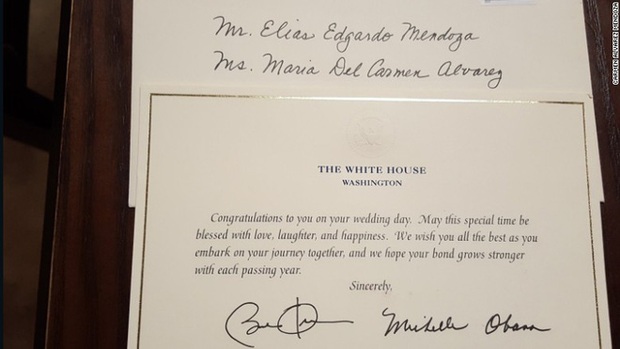 Mr. Elias Edgardo Mendoza
Ms. Maria Del Carmen Alvarez
THE WHITE HOUSE
WASHINGTON
Congratulations to you on your wedding day. May this special time be
blessed with love, laughter, and happiness. We wish you all the best as you
embark on your journey together, and we hope your bond grows stronger
with each passing year.
Sincerely,
Michelle Obama
CARMEN ALVAREZ MENDOZA